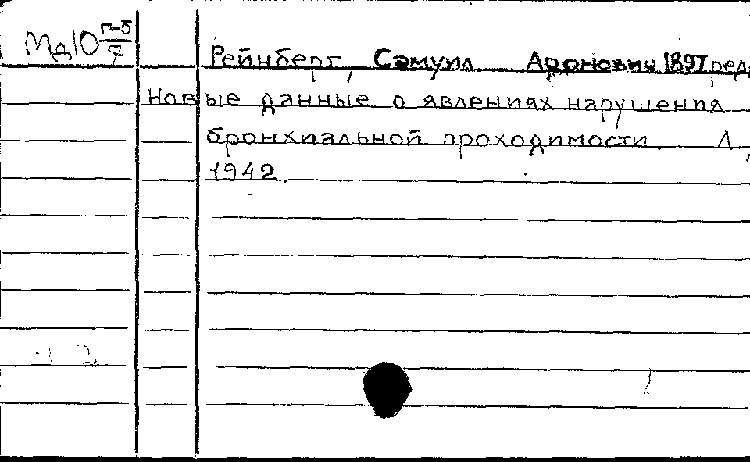 Мд10 п-5/7
Рейнберг, Самуил Аронович, 1897, ред.
Новые данные о явлениях нарушения
бронхиальной проходимости. Л.,
1942.